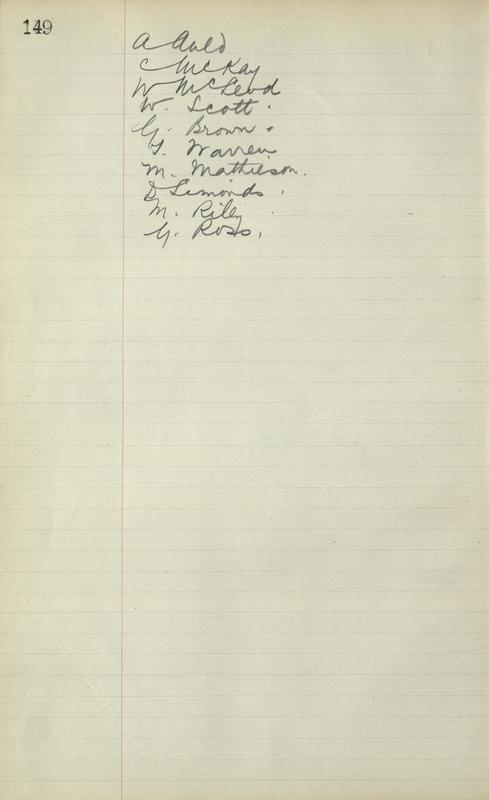 149
A Auld
C McKay
W McLeod
W. Scott.
G. Brown.
G. Warren
M. Mathieson.
D Simonds.
M. Riley.
G. Ross.